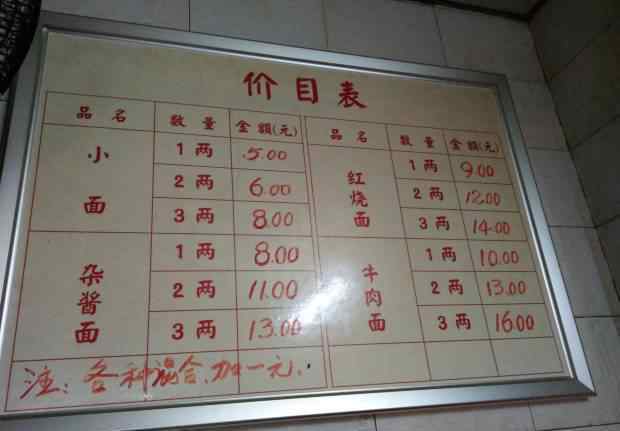 价目表
品名 数量 金额(元) 品名 数量 金额(元)
小面 1两 5.00 红烧面 1两 9.00
2两 6.00 2两 12.00
3两 8.00 3两 14.00
杂酱面 1两 8.00 牛肉面 1两 10.00
2两 11.00 2两 13.00
3两 13.00 3两 16.00
注：各种混合、加一元.